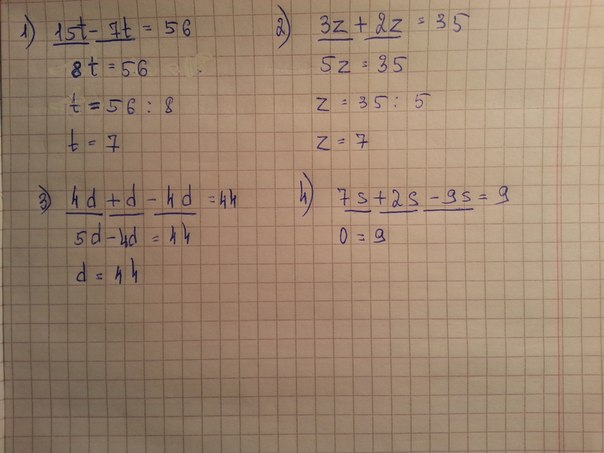 1) 15t - 7t = 56
8t = 56
t = 56 : 8
t = 7
2) 3z + 2z = 35
5z = 35
z = 35 : 5
z = 7
3) 4d + d - 4d = 44
5d - 4d = 44
d = 44
4) 7s + 2s - 9s = 9
0 = 9